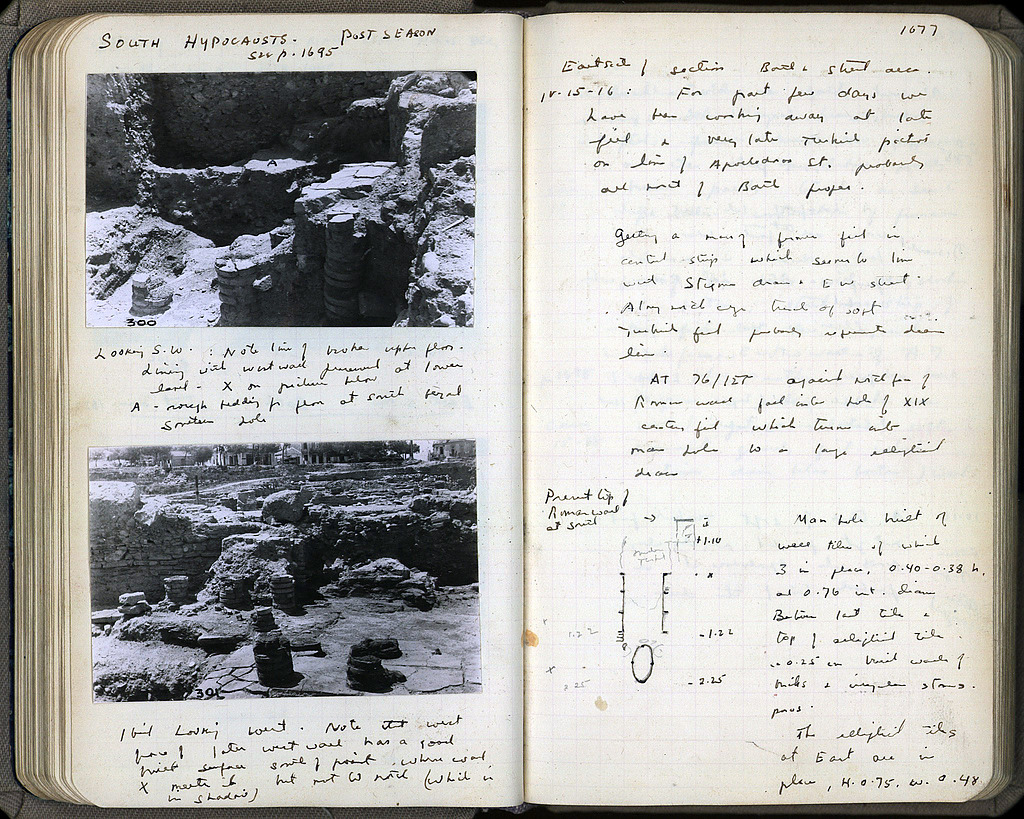 SOUTH HYPOCAUSTS. POST SEASON
See p. 1695
A
300
Looking S.W. : Note line of broken upper floor.
lining with west wall preserved at lower
level - X on picture below
A - rough bedding for floor at south beyond
Southern hole
301
Ibid Looking west. Note that west
face of later west wall has a good
finish surface south of point where wall
X meets it but not to north (which is
in shadow)
1677
East side of section Bath & street area.
IV-15-16 : For past few days we
have been working away at late
fill & very late Turkish
on line of Apollodoros St. probably
all west of Bath proper.
Getting a mass of fill in
central strip which seems to line
with Stigma drain & E W street.
Along north edge of soft
Turkish fill probably represents drain
line.
AT 76/127 against north face of
Roman wall fall into hole of XIX
century fill which turns into
man hole to a large elliptical
drain
Present top of
Roman wall
at south
+1.10
-1.22
-2.25
1.22
2.25
Man hole built of
well tiles of which
3 in place, 0.40-0.38 h,
and 0.76 int. diam
Between last tile &
top of elliptical tile
is 0.25 in built walls of
bricks & irregular stones.
The elliptical tiles
at East are in
place, H. 0.75. W. 0.48